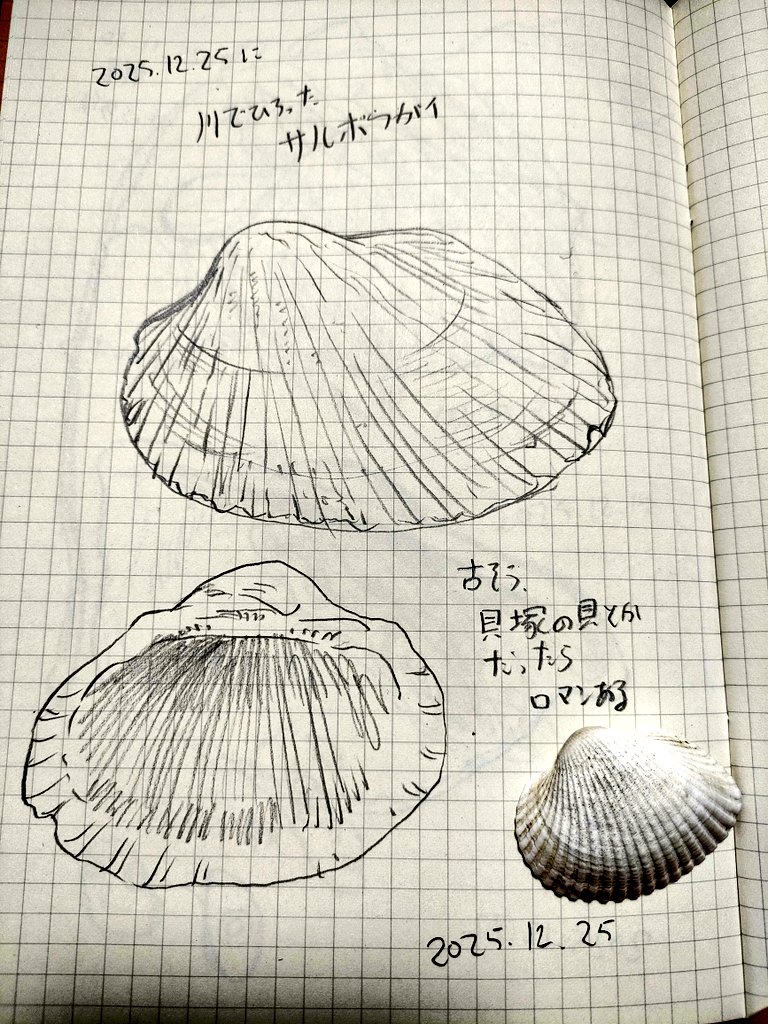 2025.12.25に
川でひろった
サルボウガイ
古そう、
貝塚の貝とか
だったら
ロマンある
2025.12.25